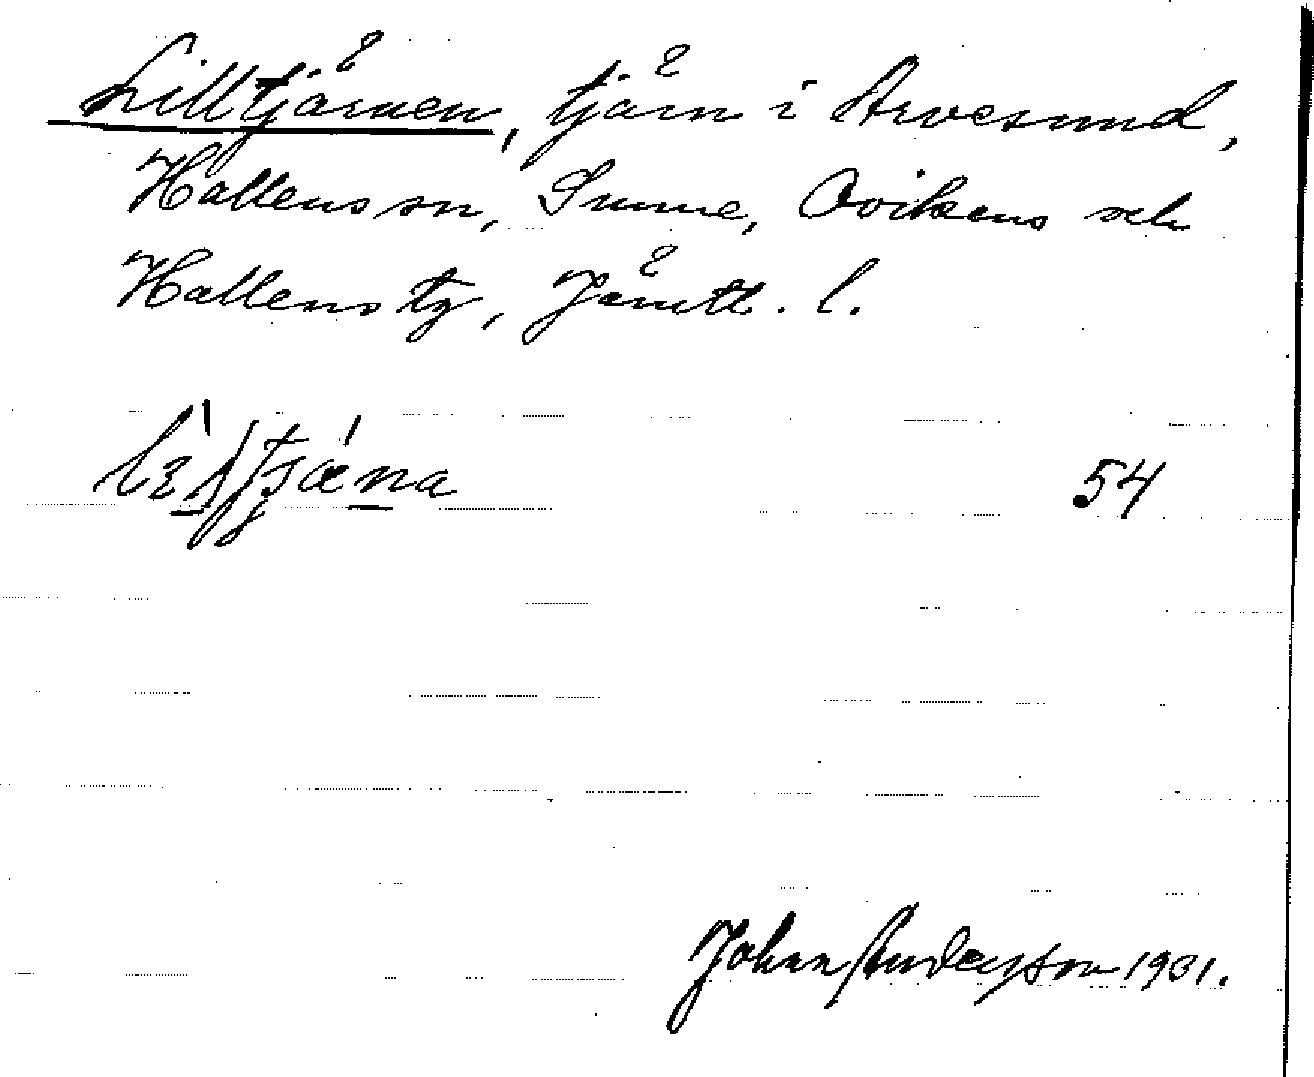 Lilltjärnen, tjärn i Arvesund,
Hallens sn, Sunne, Ovikens och
Hallens tg, Jämtl. l.
54
Johan Andersson 1931.